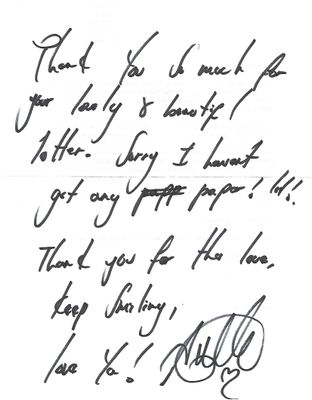 Thank You So much for
your lovely & beautiful
letter. Sorry I havent
got any paper! lol!!
Thank you for the love,
Keep Smiling,
love Ya!